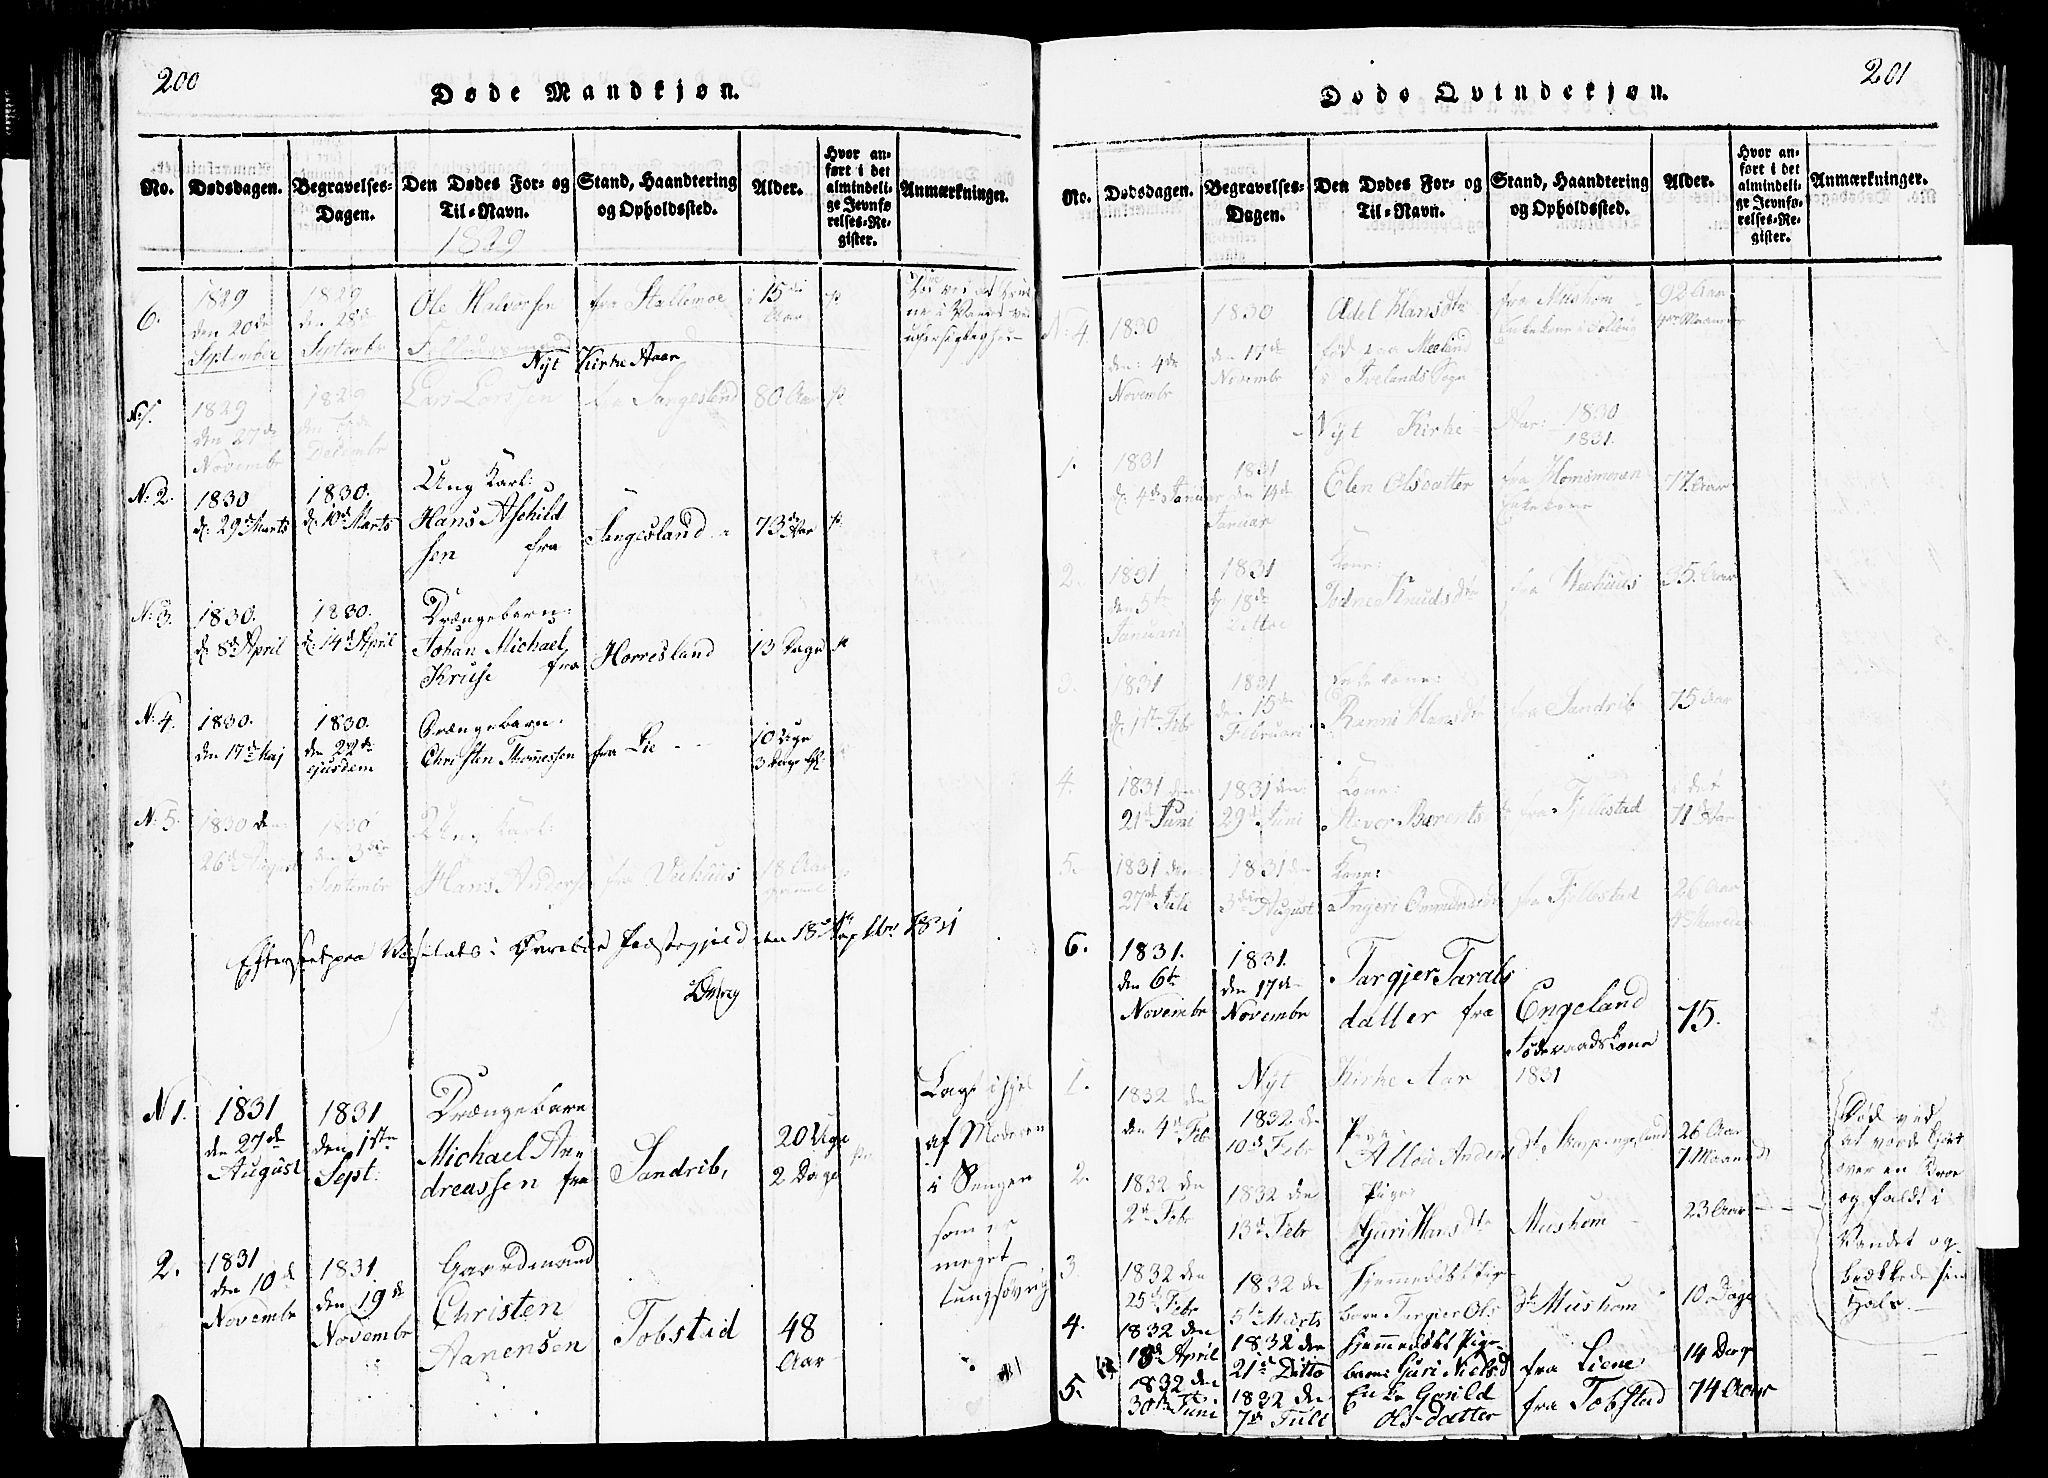 200
Døde Mandkjøn.
No.
Dødsdagen.
Begravelses-
Dagen.
Den Dødes For- og
Til-Navn.
Stand, Haandtering
og Opholdssted.
Alder.
Hvor an-
ført i det
almindeli-
ge Jevnfø-
relses-Re-
gister.
Anmærkninger.
1829
6.
1829
den 20de
September
1829
den 28de
Septembr
Ole Halvorsen
fra Stallemoe
15
Aar
Nyt Kirke Aar
N: 1.
1829
den 27de
Novembr
1829
Decembr
Lars Larssen
fra Sangesland
80 Aar
N: 2.
1830
d. 29de Marts
1830.
d. 10de Marts
Ung Karl:
Hans Aschild
sen fra
Sangesland
73 Aar
N: 3.
1830.
d. 8de April
1830.
d. 14de April
Drængebarn:
Johan Michael
Kruse fra
Horresland
13 Dage
N: 4.
1830.
den 17de Maj
1830.
den 22de
ejusdem
Drængebarn.
Christen Thomessen
fra Lie
10 Uge
3 Dage
N: 5.
1830 den
26de August
1830
den 3die
Septembr
Ung Karl:
Hans Anderse
fra Veehuus
18 Aar
Efterseet paa Visitats i Øvrebøe Præstegjeld den 18de Septbr 1831
N 1.
1831
den 27de
August
1831
den 1ste
Sept:
Drængebarn
Michael An-
dreassen fra
Sandrib,
20 Uge
2 Dage
Lagt ihjel
af Moderen
i Sengen
som er
meget
tungsøvrig
2.
1831
den 10de
Novembr
1831
den 19de
Novembr
Gaardmand
Christen
Aanensen
Tobstad
48
Aar
201
Døde Qvindekjøn.
No.
Dødsdagen.
Begravelses-
Dagen.
Den Dødes For- og
Til-Navn.
Stand, Haandtering
og Opholdssted.
Alder.
Hvor an-
ført i det
almindeli-
ge Jevnfø-
relses-Re-
gister.
Anmærkninger.
N: 4
1830
den: 4de
Novembr
1830
den 17de
Novembr
Adel Hansdtr
født paa
i Tvelands Sogn
fra Mushom
92 Aar
Nyt Kirke Aar: 1830
1831.
1.
1831
d. 4de Januar
1831
den 14de
Januar
Elen Olsdatter
fra Homsmoen
Enkekone
77 Aar
2.
1831
den 5te
Januari
1831
d. 18de
Ditto
Kone:
Knudsdtr
fra Veehuus
35. Aar
3.
1831
d. 1ste Febr
1831
den 15de
Februari
Ranni Hansdtr
fra Sandrib
75 Aar
4.
1831 den
21de Juni
1831 den:
29de Juni
Kone:
Barents
fra Fjellestad
71 Aar
5.
1831 den
27de Juli
1831 den
3die August
Kone:
Ingeri Omundsdtr
fra Fjellestad
26 Aar
6.
1831.
den 6te
Novembr
1831.
den 17de
Novembr
Targjer Tarals
datter fra
Engeland
Føderaadskone
75.
Nyt Kirke Aar 1831
1.
1832 den
den 4de Feb
1832 den
10de Febr
Pige:
Anders dtr
26 Aar
7 Maaned
2.
1832 den
2de Febr
1832 den
13de Febr
Pige:
Guri Hans dtr
Mushom
23 Aar
Død ved
at være kjørt
over en Broe
og faldt i
Vandet og
brækkede sin
Hals.
3.
1832 den
25de Febr
1832 den
5te Marts
hjemedøbt Pige-
barn Targier Ols dtr
Mushom
10 Dage
4.
1832 den
18de April
1832 den
21de Ditto
hjemmedøbt Pige-
barn Guri Nielsd
fra Liene
14 Dage
5.
1832 den
30te Juni
1832 den
7de Juli
Enke Gunild
Olsdatter
fra Tobstad
74 Aar